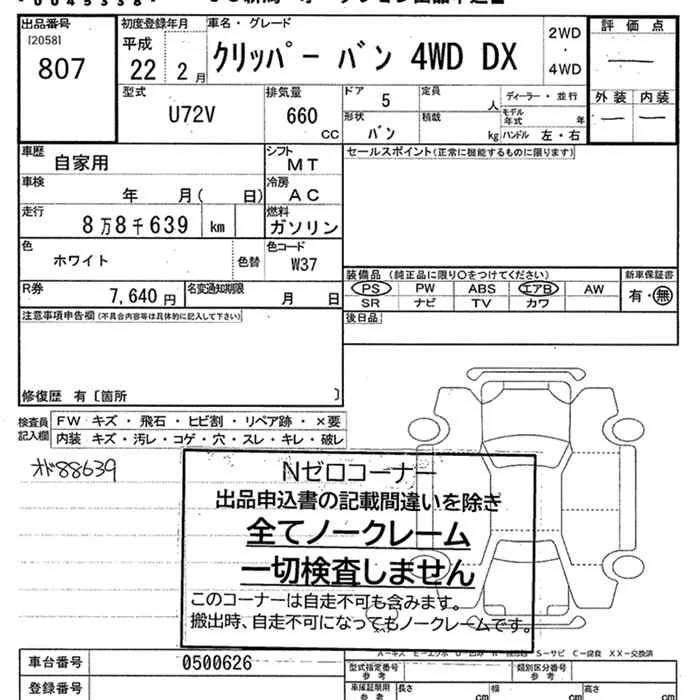 出品番号
[2058]
807
初度登録年月
平成
22 2 月
車名・グレード
クリッパー バン 4WD DX
2WD
・
4WD
評価点
外装 内装
型式
U72V
排気量
660
CC
ドア 5
定員 人
ディーラー・並行
形状 バン
積載 kg
モデル年式 年
ハンドル 左・右
車歴 自家用
シフト MT
セールスポイント(正常に機能するものに限ります)
車検 年 月( 日)
冷房 AC
走行 8万8千639 km
燃料 ガソリン
色 ホワイト 色替
色コード W37
装備品 (純正品に限り〇をつけてください)
新車保証書
PS PW ABS エアB AW
有・無
SR ナビ TV カワ
R券 7,640 円
名変通知期限 月 日
注意事項申告欄(不具合内容等は具体的に記入して下さい)
後日品
修復歴 有〔箇所 〕
検査員記入欄
FW キズ・飛石・ヒビ割・リペア跡・×要
内装 キズ・汚レ・コゲ・穴・スレ・キレ・破レ
オド88639
Nゼロコーナー
出品申込書の記載間違いを除き
全てノークレーム
一切検査しません
このコーナーは自走不可も含みます。
搬出時、自走不可になってもノークレームです。
S-サビ C-腐食 XX-交換済
車台番号 0500626
型式指定番号 参考
類別区分番号 参考
登録番号
車庫証明用 参考
長さ cm
幅 cm
高さ cm